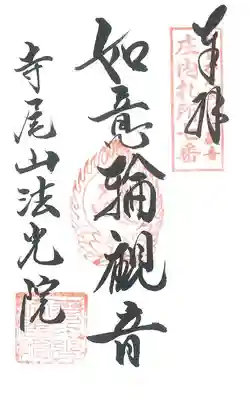 奉拝
庄内札所
如意輪観音
寺尾山法光院